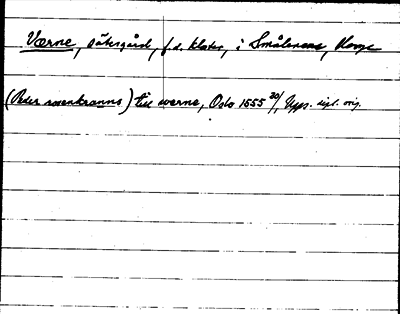 Værne, sätesgård, f.d. kloster, i Smålenene, Norge
(Peder rosenkranns) till werne, Oslo 1555 20/1, Upps. sigl. orig.